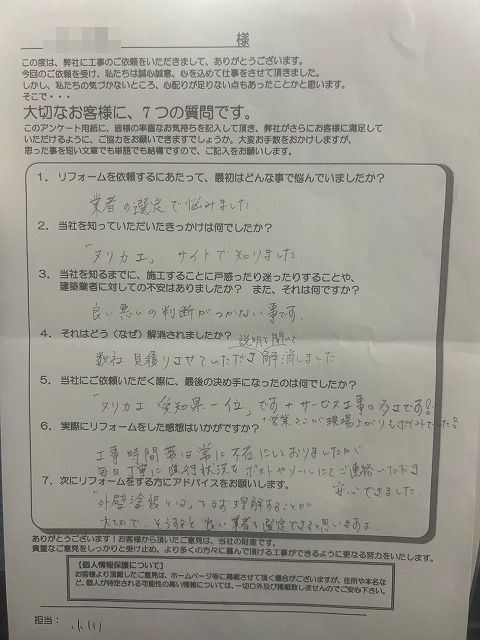 様
この度は、弊社に工事のご依頼をいただきまして、ありがとうございます。
今回のご依頼を受け、私たちは誠心誠意、心を込めて仕事をさせて頂きました。
しかし、私たちの気づかないところ、心配りが足りない点もあったことかと思います。
そこで・・・
大切なお客様に、7つの質問です。
このアンケート用紙に、皆様の率直なお気持ちを記入して頂き、弊社がさらにお客様に満足して
いただけるように、ご協力をお願いできますでしょうか。大変お手数をおかけしますが、
思った事を短い文章でも単語でも結構ですので、ご記入をお願いします。
1. リフォームを依頼するにあたって、最初はどんな事で悩んでいましたか？
業者の選定で悩みました。
2. 当社を知っていただいたきっかけは何でしたか？
「ヌリカエ」サイトで知りました。
3. 当社を知るまでに、施工することに戸惑ったり迷ったりすることや、
建築業者に対しての不安はありましたか？ また、それは何ですか？
良い悪いの判断がつかない事です。
4. それはどう（なぜ）解消されましたか？
説明を聞いて
数社見積りさせていただき解消しました。
5. 当社にご依頼いただく際に、最後の決め手になったのは何でしたか？
「ヌリカエ 愛知県一位」です＋サービス工事の多さです！
営業マンが現場上がりもポイントでした
6. 実際にリフォームをした感想はいかがですか？
工事時間帯は常に不在にしておりましたが
毎日丁寧に進行状況をポストやメールにてご連絡いただき
安心できました。
7. 次にリフォームをする方にアドバイスをお願いします。
「外壁塗装とは」をまず理解することが
大切で、そうすると良い業者を選定できると思いますよ
ありがとうございます！お客様から頂いたご意見は、当社の財産です。
貴重なご意見をしっかりと受け止め、より多くの方々に喜んで頂ける工事ができるように更なる努力をいたします。
【個人情報保護について】
お客様より頂戴したご意見は、ホームページ等に掲載させて頂く場合がございますが、住所や本名な
ど、個人が特定される可能性の高い情報については、一切口外及び掲載致しませんのでご安心下さい。
担当： 小川